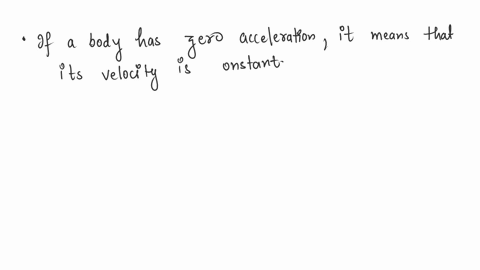 • If a body has zero acceleration, it means that
its velocity is onstant.